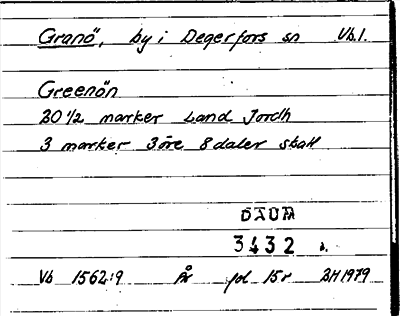 Granö, by i Degerfors sn Vb.l.
Greenön
20 1/2 marker Land Jordh
3 marker 3öre 8daler skatt
DAUM
3432
Vb 1562:9 År fol 15r BH1979